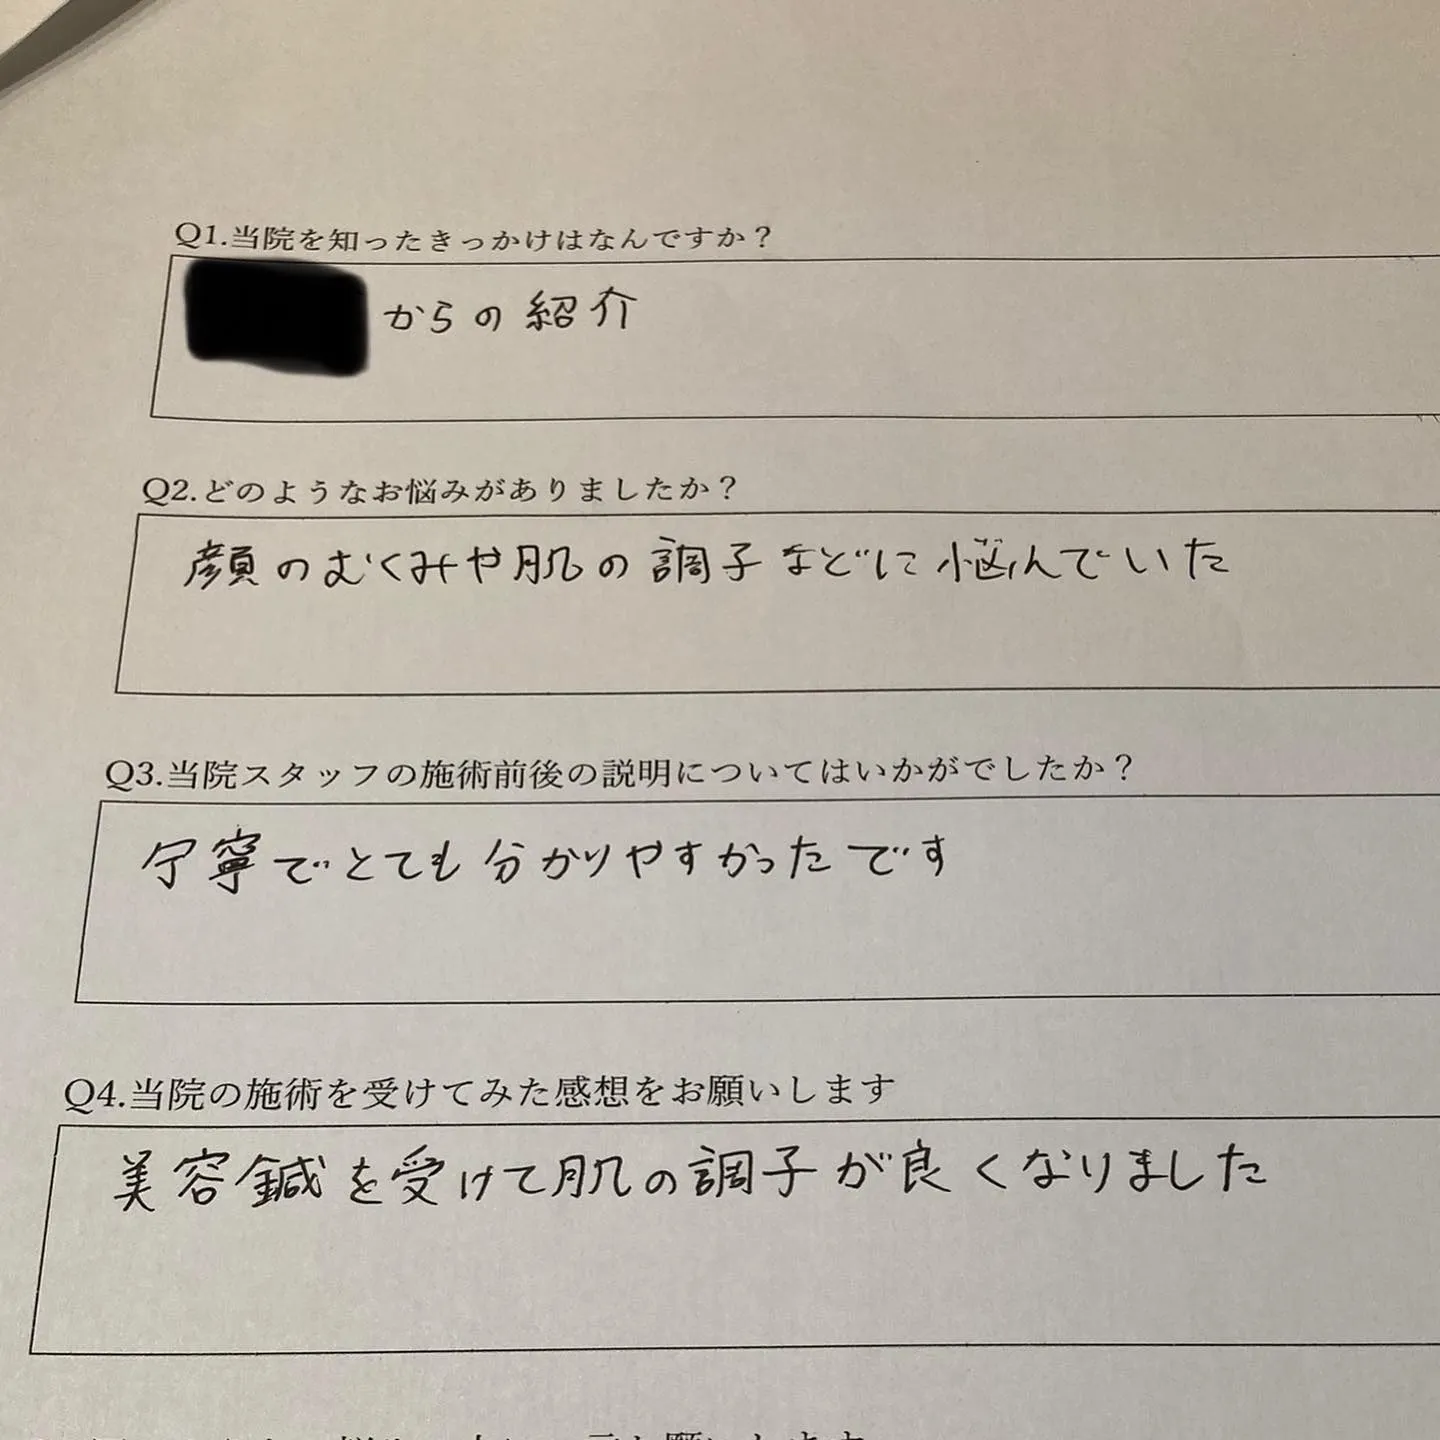 Q1.当院を知ったきっかけはなんですか？
からの紹介
Q2.どのようなお悩みがありましたか？
顔のむくみや肌の調子などに悩んでいた
Q3.当院スタッフの施術前後の説明についてはいかがでしたか？
丁寧でとても分かりやすかったです
Q4.当院の施術を受けてみた感想をお願いします
美容鍼を受けて肌の調子が良くなりました